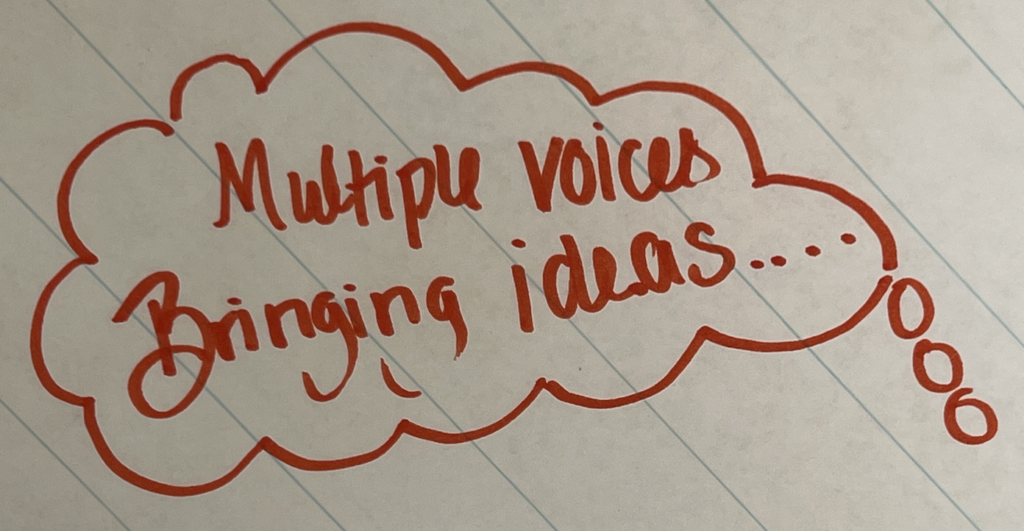 Multiple voices
Bringing ideas....